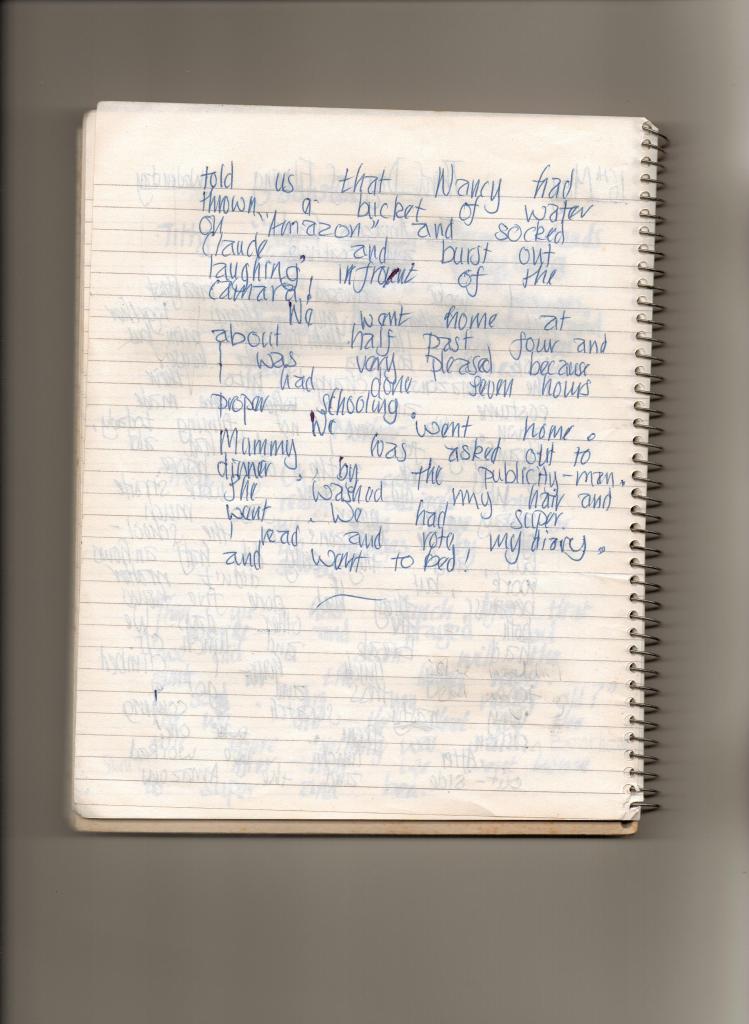 told us that Nancy had
thrown a bucket of water
on "Amazon" and socked
Claude, and burst out
laughing, infrount of the
camara!
We went home at
about half past four and
I was very pleased because
I had done seven hours
proper schooling.
We went home.
Mummy was asked out to
dinner, by the publicity-man.
She washed my hair and
went. We had super.
I read and rote my diary.
and want to bed!